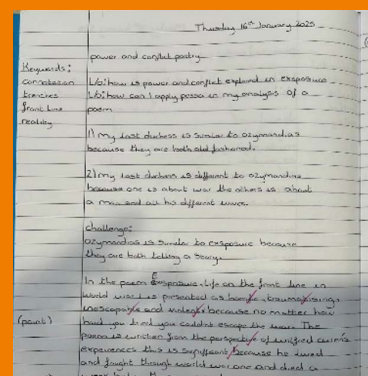 Thursday 16th January 2025
power and conflict poetry
Keywords:
connotation
trenches
front line
reality
L/o: how is power and conflict explored in exsposure
L/o: how can I apply in my analysis of a
poem
1) my last duchess is similar to ozymandias
because they are both old fashoned.
2) my last duchess is different to ozymandias
because one is about war the others is about
a man and all his different
challenge:
ozymandias is similar to exsposure because
they are both telling a story.
In the poem Exsposure. Life on the front line in
world war is presented as
inescapable and violent because no matter how
hard you tryed you couldnt escape the war. The
(point)
poem is written from the perspective of wilfred owen's
experiences this is significant because he lived
and fought through world war one and died a